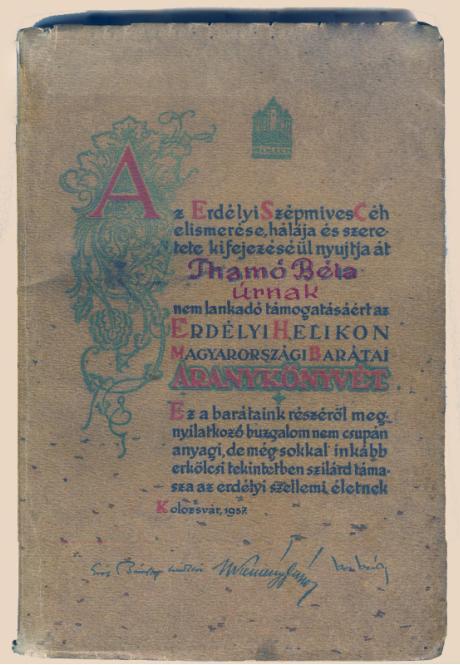 Az Erdélyi Szépmives Céh
elismerése, hálája és szere-
tete kifejezéséül nyujtja át
Thamó Béla
úrnak
nem lankadó támogatásáért az
ERDÉLYI HELIKON
MAGYARORSZÁGI BARÁTAI
ARANYKÖNYVÉT
Ez a barátaink részéről meg-
nyilatkozó buzgalom nem csupán
anyagi, de még sokkal inkább
erkölcsi tekintetben szilárd táma-
sza az erdélyi szellemi életnek
Kolozsvár, 1937.